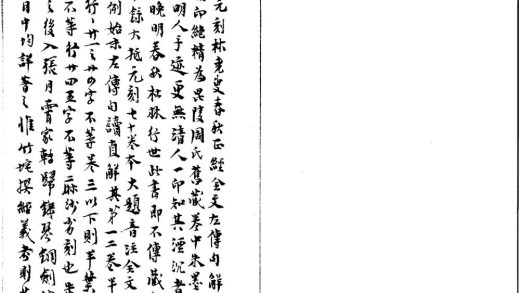 元刻林堯叟春秋正經全文左傳句解
印絕精為毘陵周氏舊藏卷中朱墨
明人手迹更無清人一印知其湮沉者
晚明春秋杜林行世此書即不傳藏
錄大抵元刻七十卷本大題音注全文
例始末左傳句讀直解其第一二卷半
行行廿一至廿四字不等卷三以下則半葉
不等行廿四五字不等麻沙書刻也
之後入張月霄家轉歸鐵琴銅劍
目中均詳著之惟竹垞撰經義考則